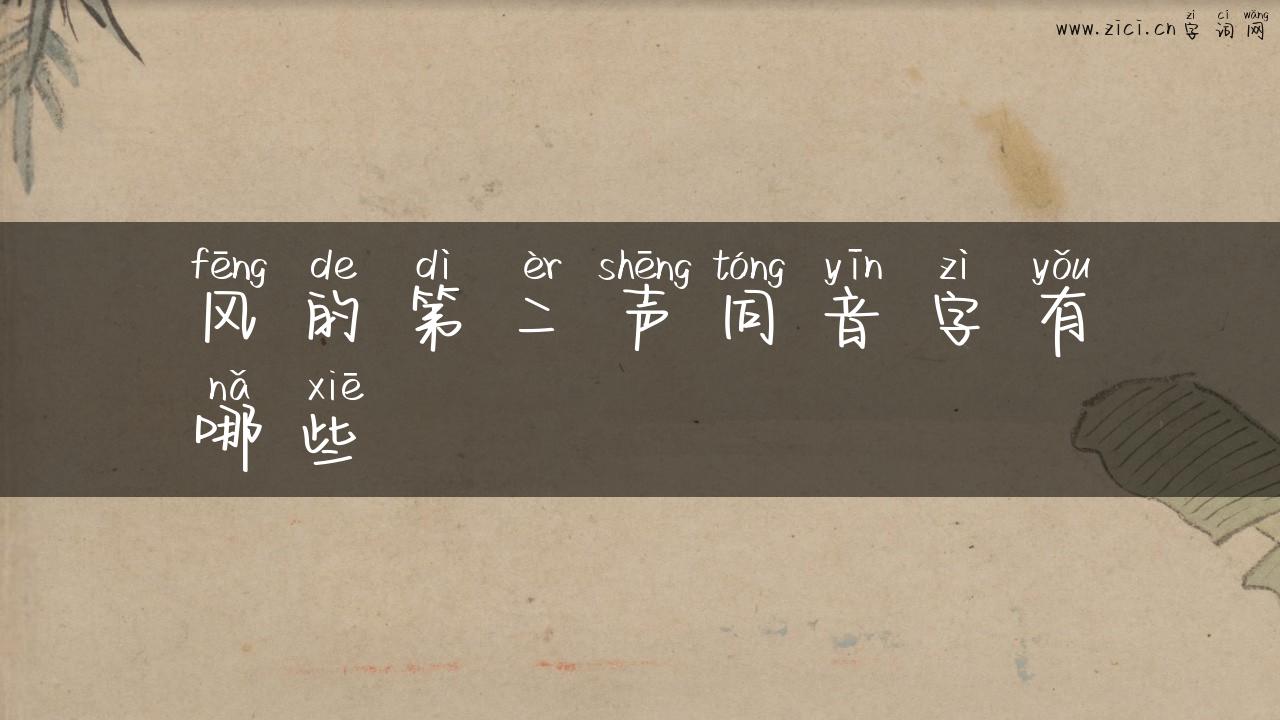 zì cí wǎng
www.zici.cn 字词网
fēng de dì èr shēng tóng yīn zì yǒu
风的第二声同音字有
nǎ xiē
哪些